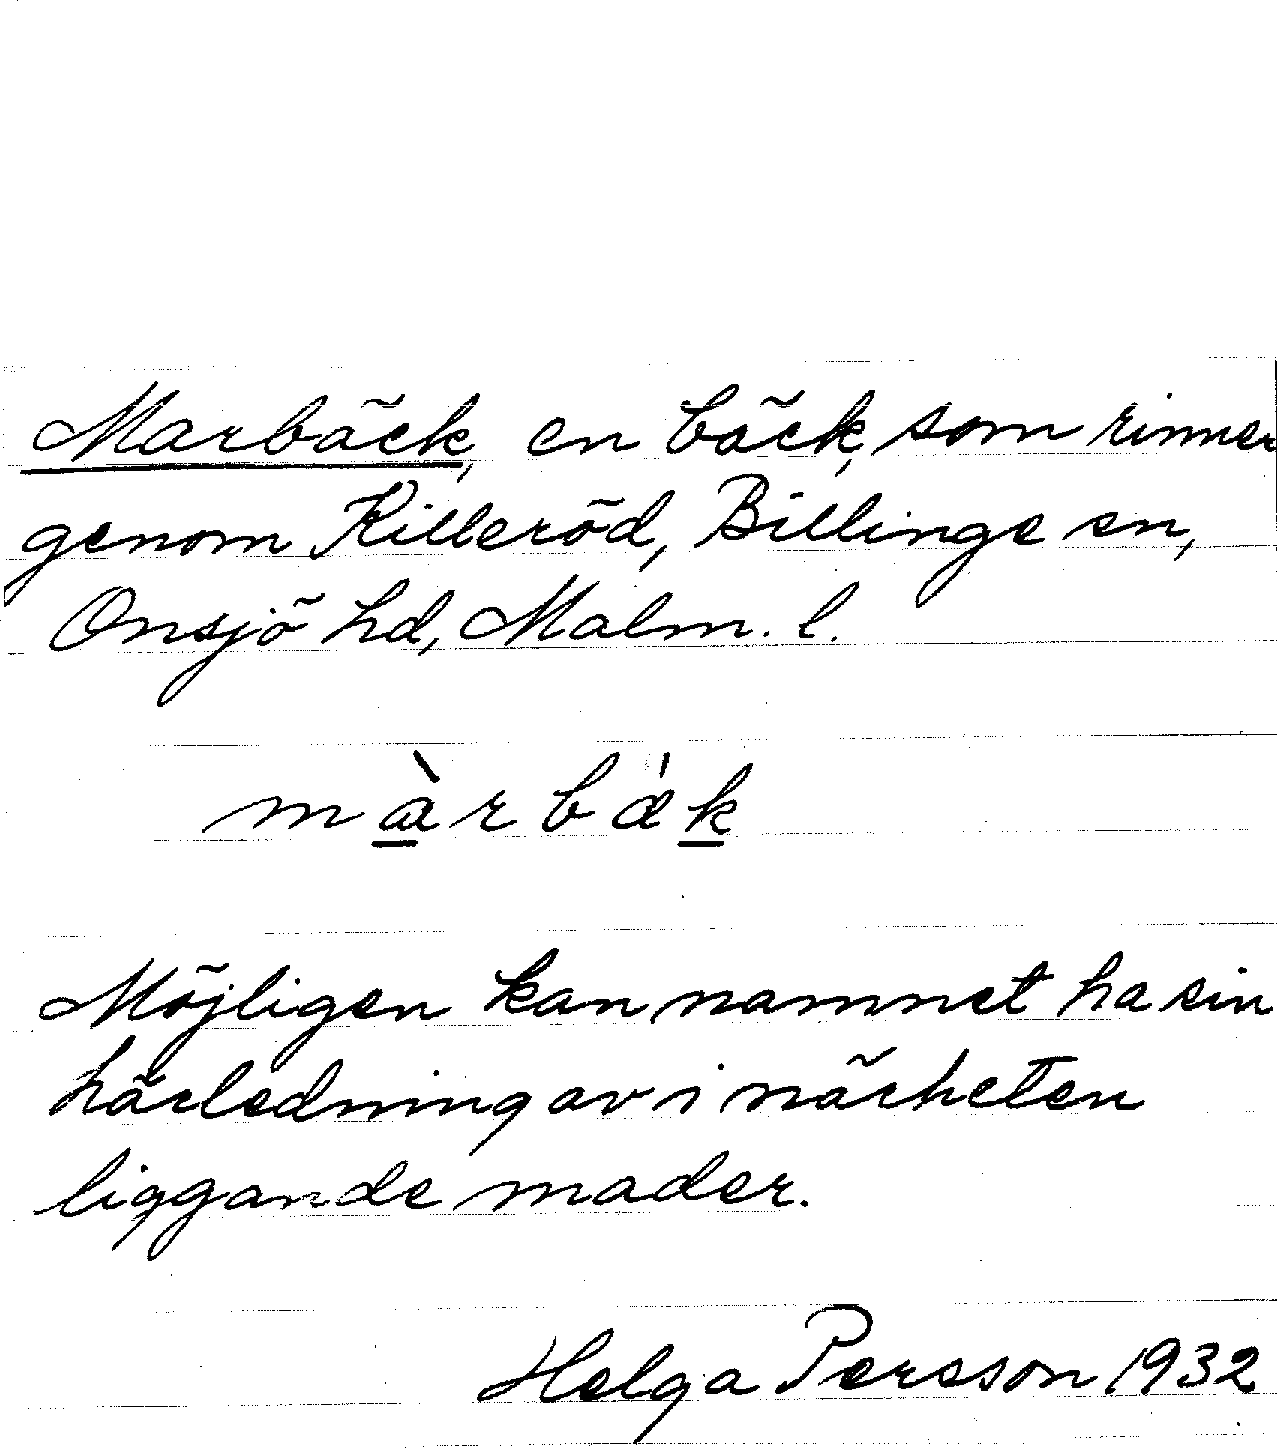 Marbäck, en bäck, som rinner
genom Killeröd, Billinge sn,
Onsjö hd, Malm. l.
màrbǽk
Möjligen kan namnet ha sin
härledning av i närheten
liggande mader.
Helga Persson 1932